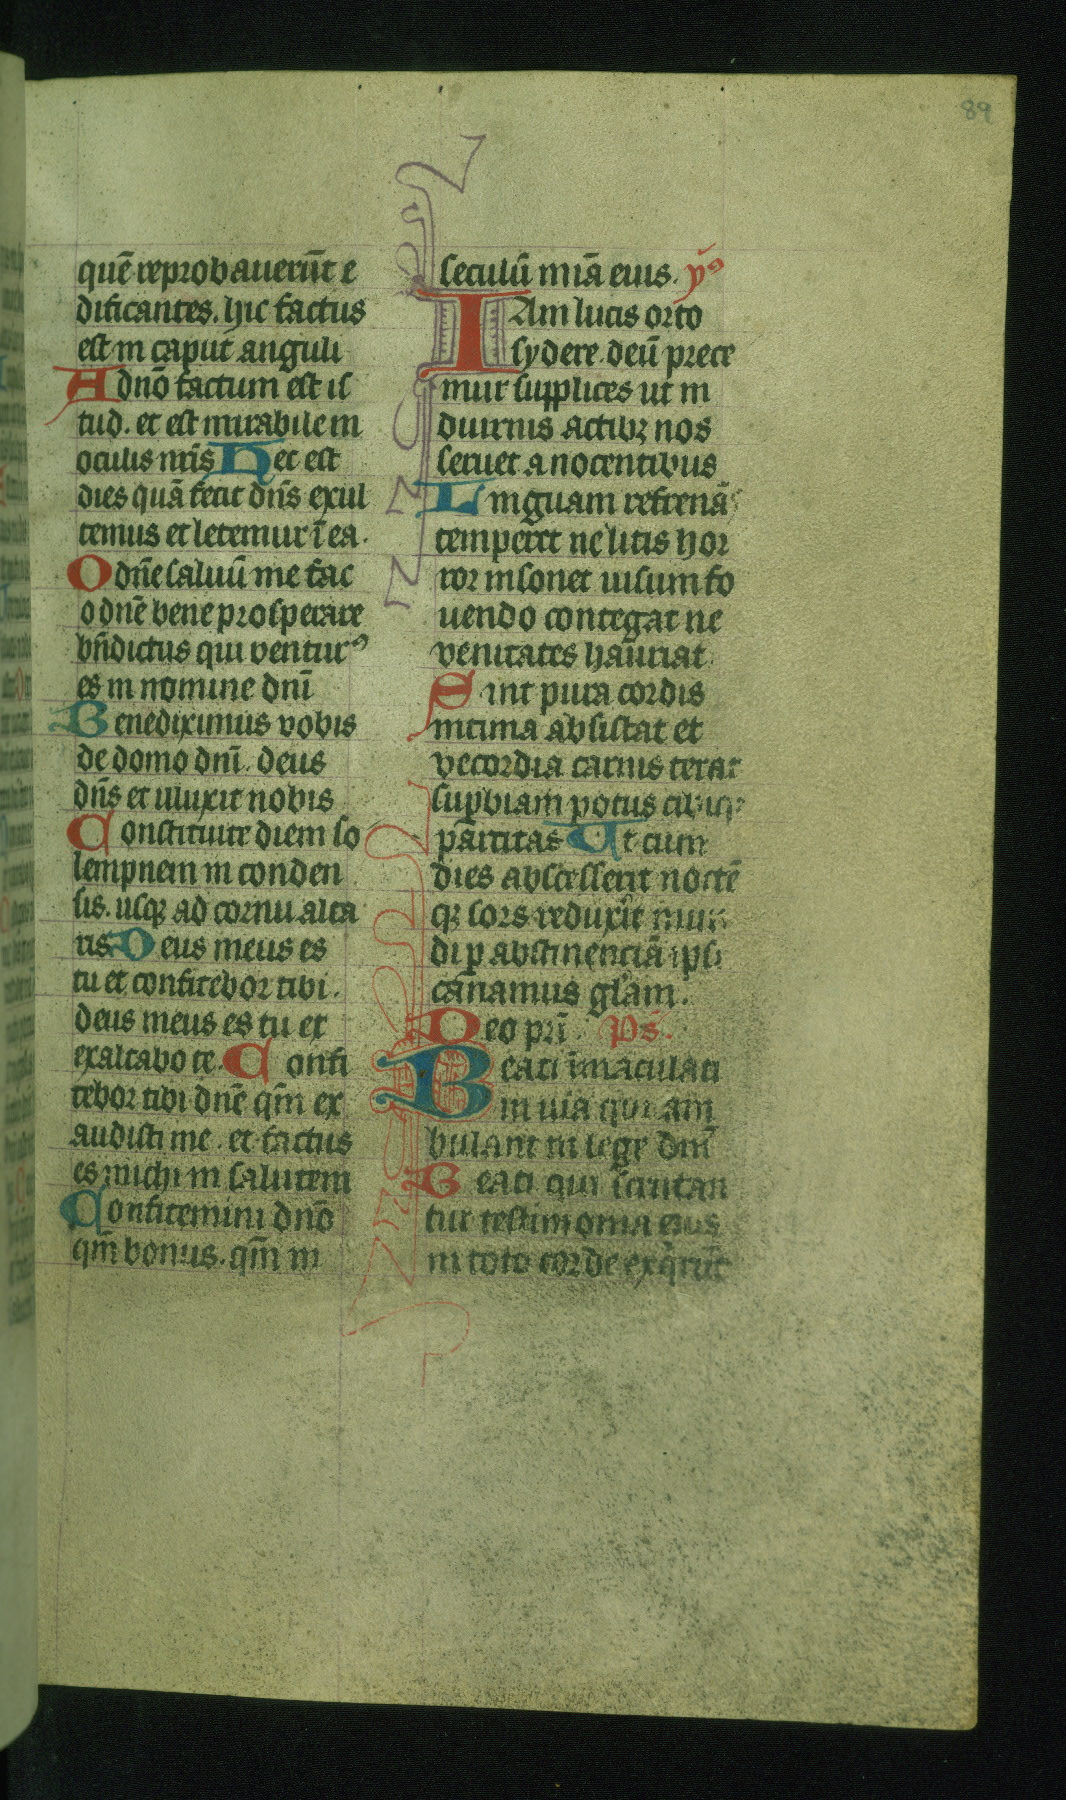 89
quē reprobauerūt e
dificantes. hic factus
est in caput anguli
A dnō factum est is
tud. et est mirabile in
oculis nr̄is Hec est
dies quā fecit dn̄s exul
temus et letemur ī ea.
O dn̄e saluū me fac
o dn̄e bene prosperare
bn̄dictus qui venturꝰ
es in nomine dn̄i
Benediximus vobis
de domo dn̄i. deus
dn̄s et illuxit nobis
Constituite diem so
lempnem in conden
sis. usqꝫ ad cornu alta
ris Deus meus es
tu et confitebor tibi.
deus meus es tu et
exaltabo te. Confi
tebor tibi dn̄e qm̄ ex
audisti me. et factus
es michi in salutem
Confitemini dnō
qm̄ bonus. qm̄ in
seculū mīa eius. ym̄ꝰ
IAm lucis orto
sydere. deū prece
mur supplices ut in
diurnis actibꝫ nos
seruet a nocentibus
Linguam refrenās
temperet ne litis hor
ror insonet uisum fo
uendo contegat ne
venitates hauriat.
Sint pura cordis
intima absistat et
vecordia carnis terat
suꝑbiam potus cibiqꝫ
parcitas Ut cum
dies abscesserit noctē
qꝫ sors reduxīt mun
di ꝑ abstinenciā ipsi
canamus glām.
Deo pr̄i. Ps̄.
Beati īmaculati
in uia qui am
bulant in lege dn̄i
Beati qui scrutan
tur testimonia eius
in toto corde exqīrūt